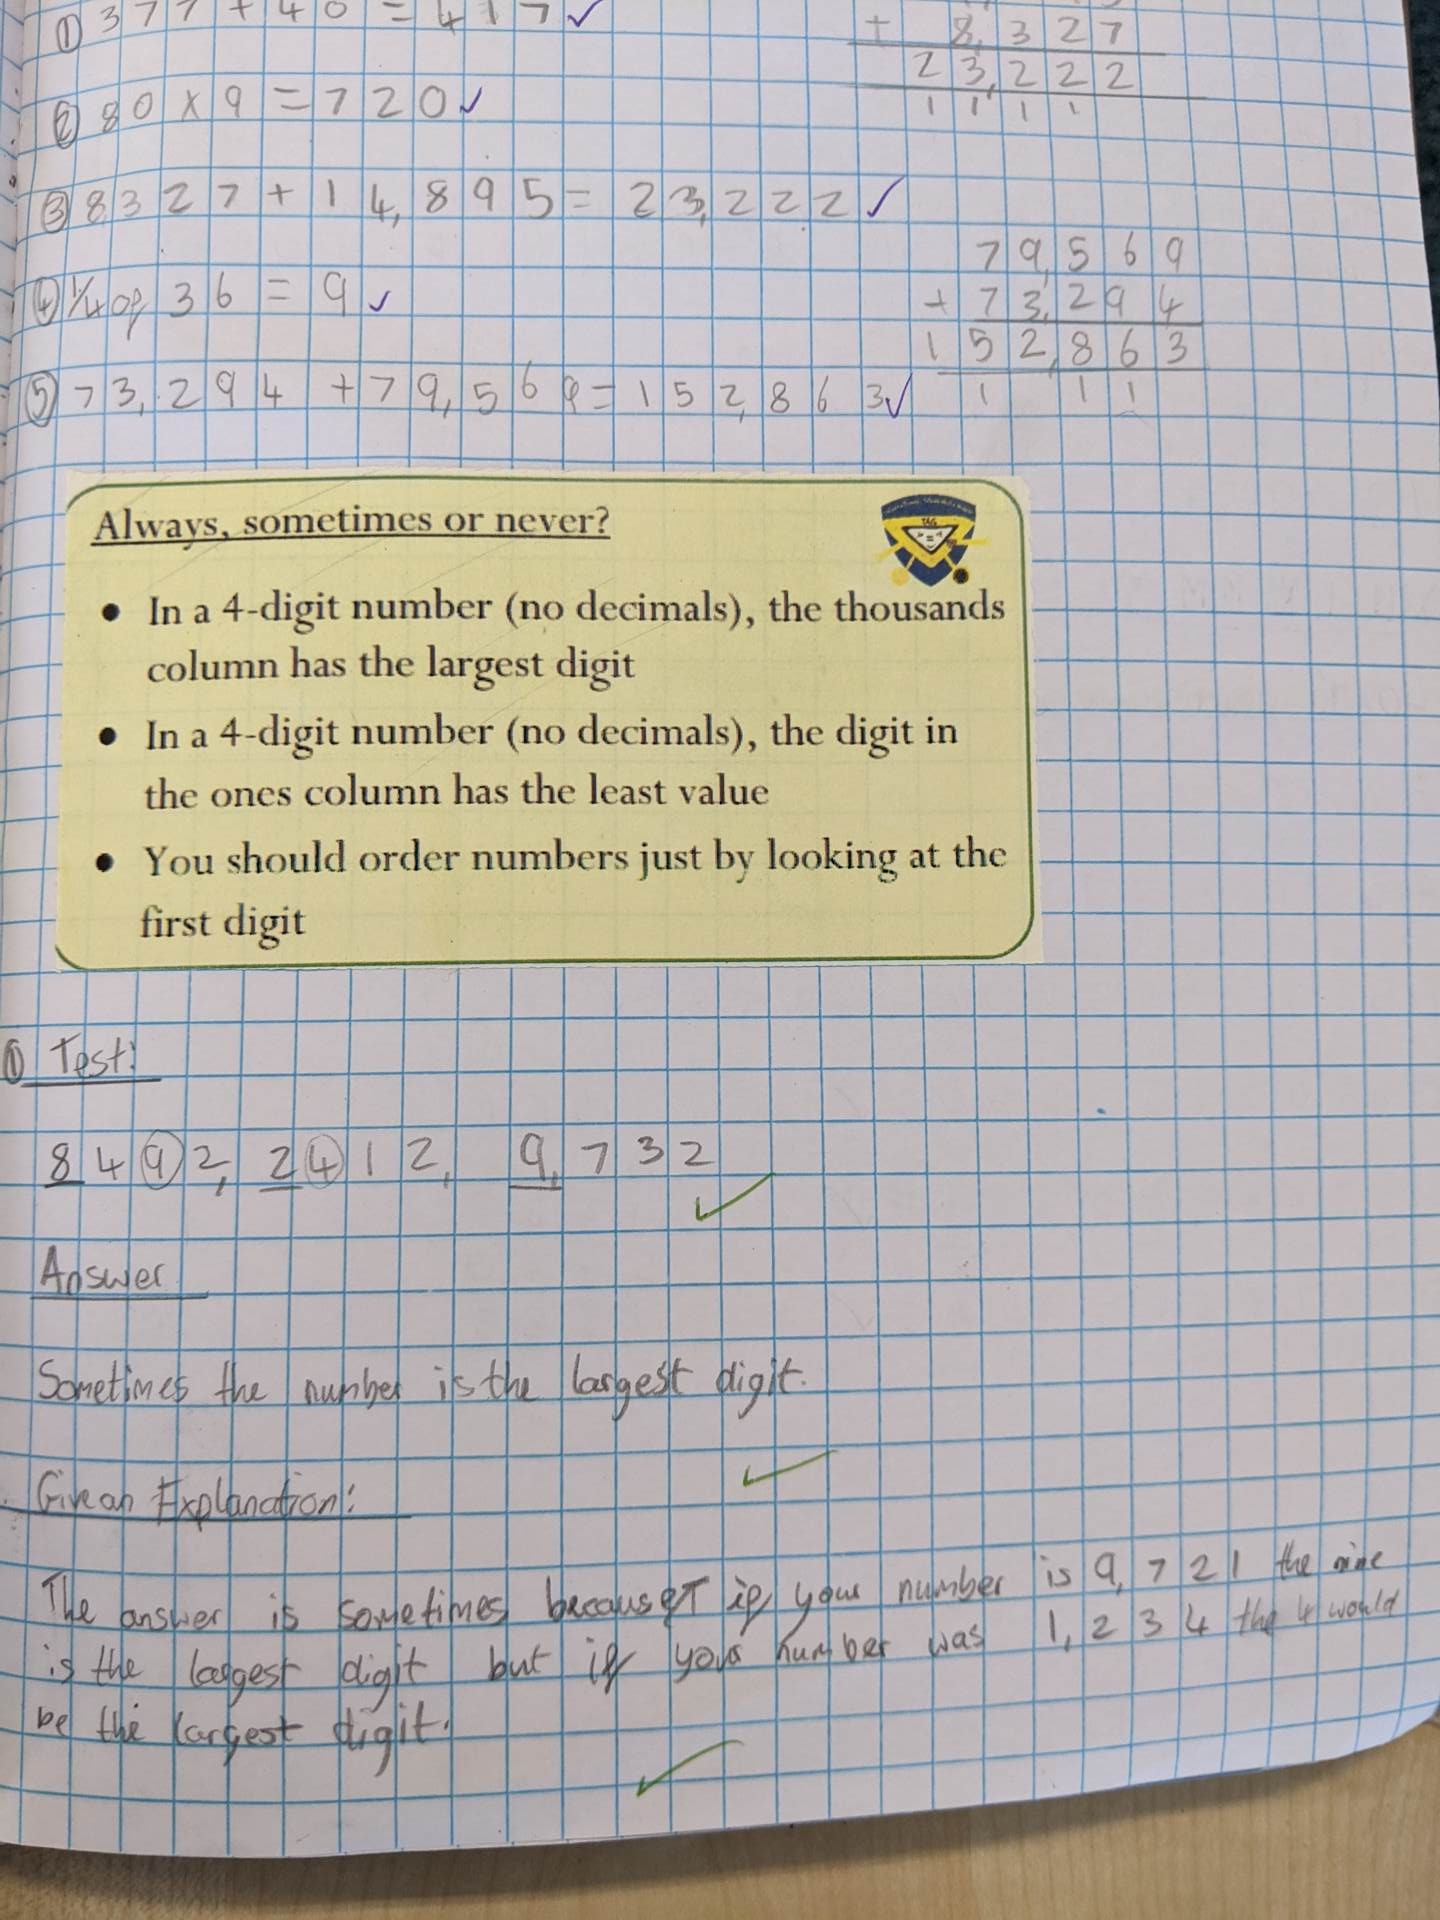 ① 377 + 40 = 417 ✓
+ 8,327
23,222
1 1 1 1
② 80 x 9 = 720 ✓
③ 8327 + 14,895 = 23,222 ✓
79,569
+ 73,294
152,863
1 1 1
④ 1/4 of 36 = 9 ✓
⑤ 73,294 + 79,569 = 152,863 ✓
Always, sometimes or never?
TAG
• In a 4-digit number (no decimals), the thousands
column has the largest digit
• In a 4-digit number (no decimals), the digit in
the ones column has the least value
• You should order numbers just by looking at the
first digit
① Test:
8492, 2412, 9,732
Answer
Sometimes the number is the largest digit.
Give an Explanation:
The answer is sometimes because if your number is 9,721 the nine
is the largest digit but if your number was 1,234 the 4 would
be the largest digit.